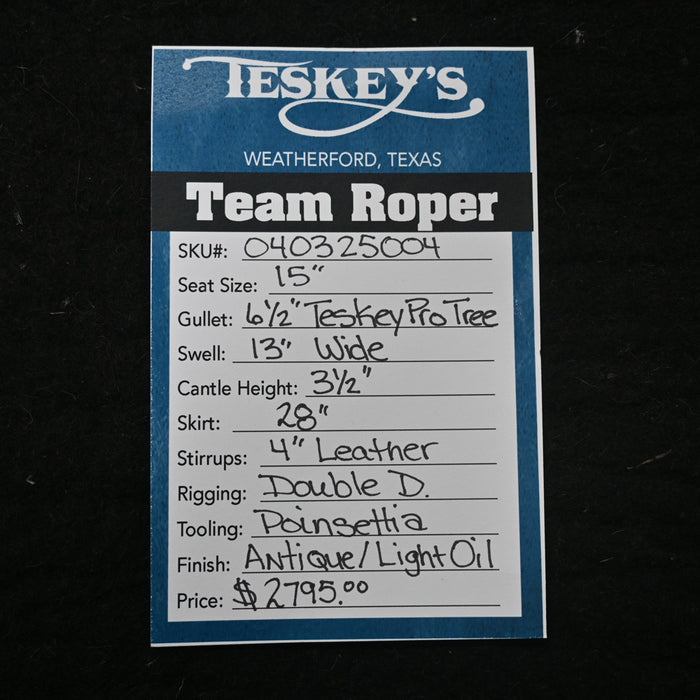 TESKEY'S
WEATHERFORD, TEXAS
Team Roper
SKU#: 040325004
Seat Size: 15"
Gullet: 6½" Teskey Pro Tree
Swell: 13" Wide
Cantle Height: 3½"
Skirt: 28"
Stirrups: 4" Leather
Rigging: Double D.
Tooling: Poinsettia
Finish: Antique/Light Oil
Price: $2795.00